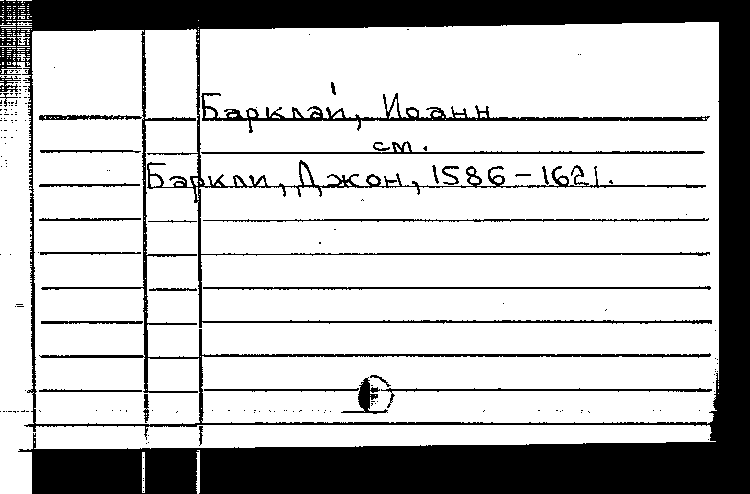 Баркла́й, Иоанн
см.
Баркли, Джон, 1586-1621.